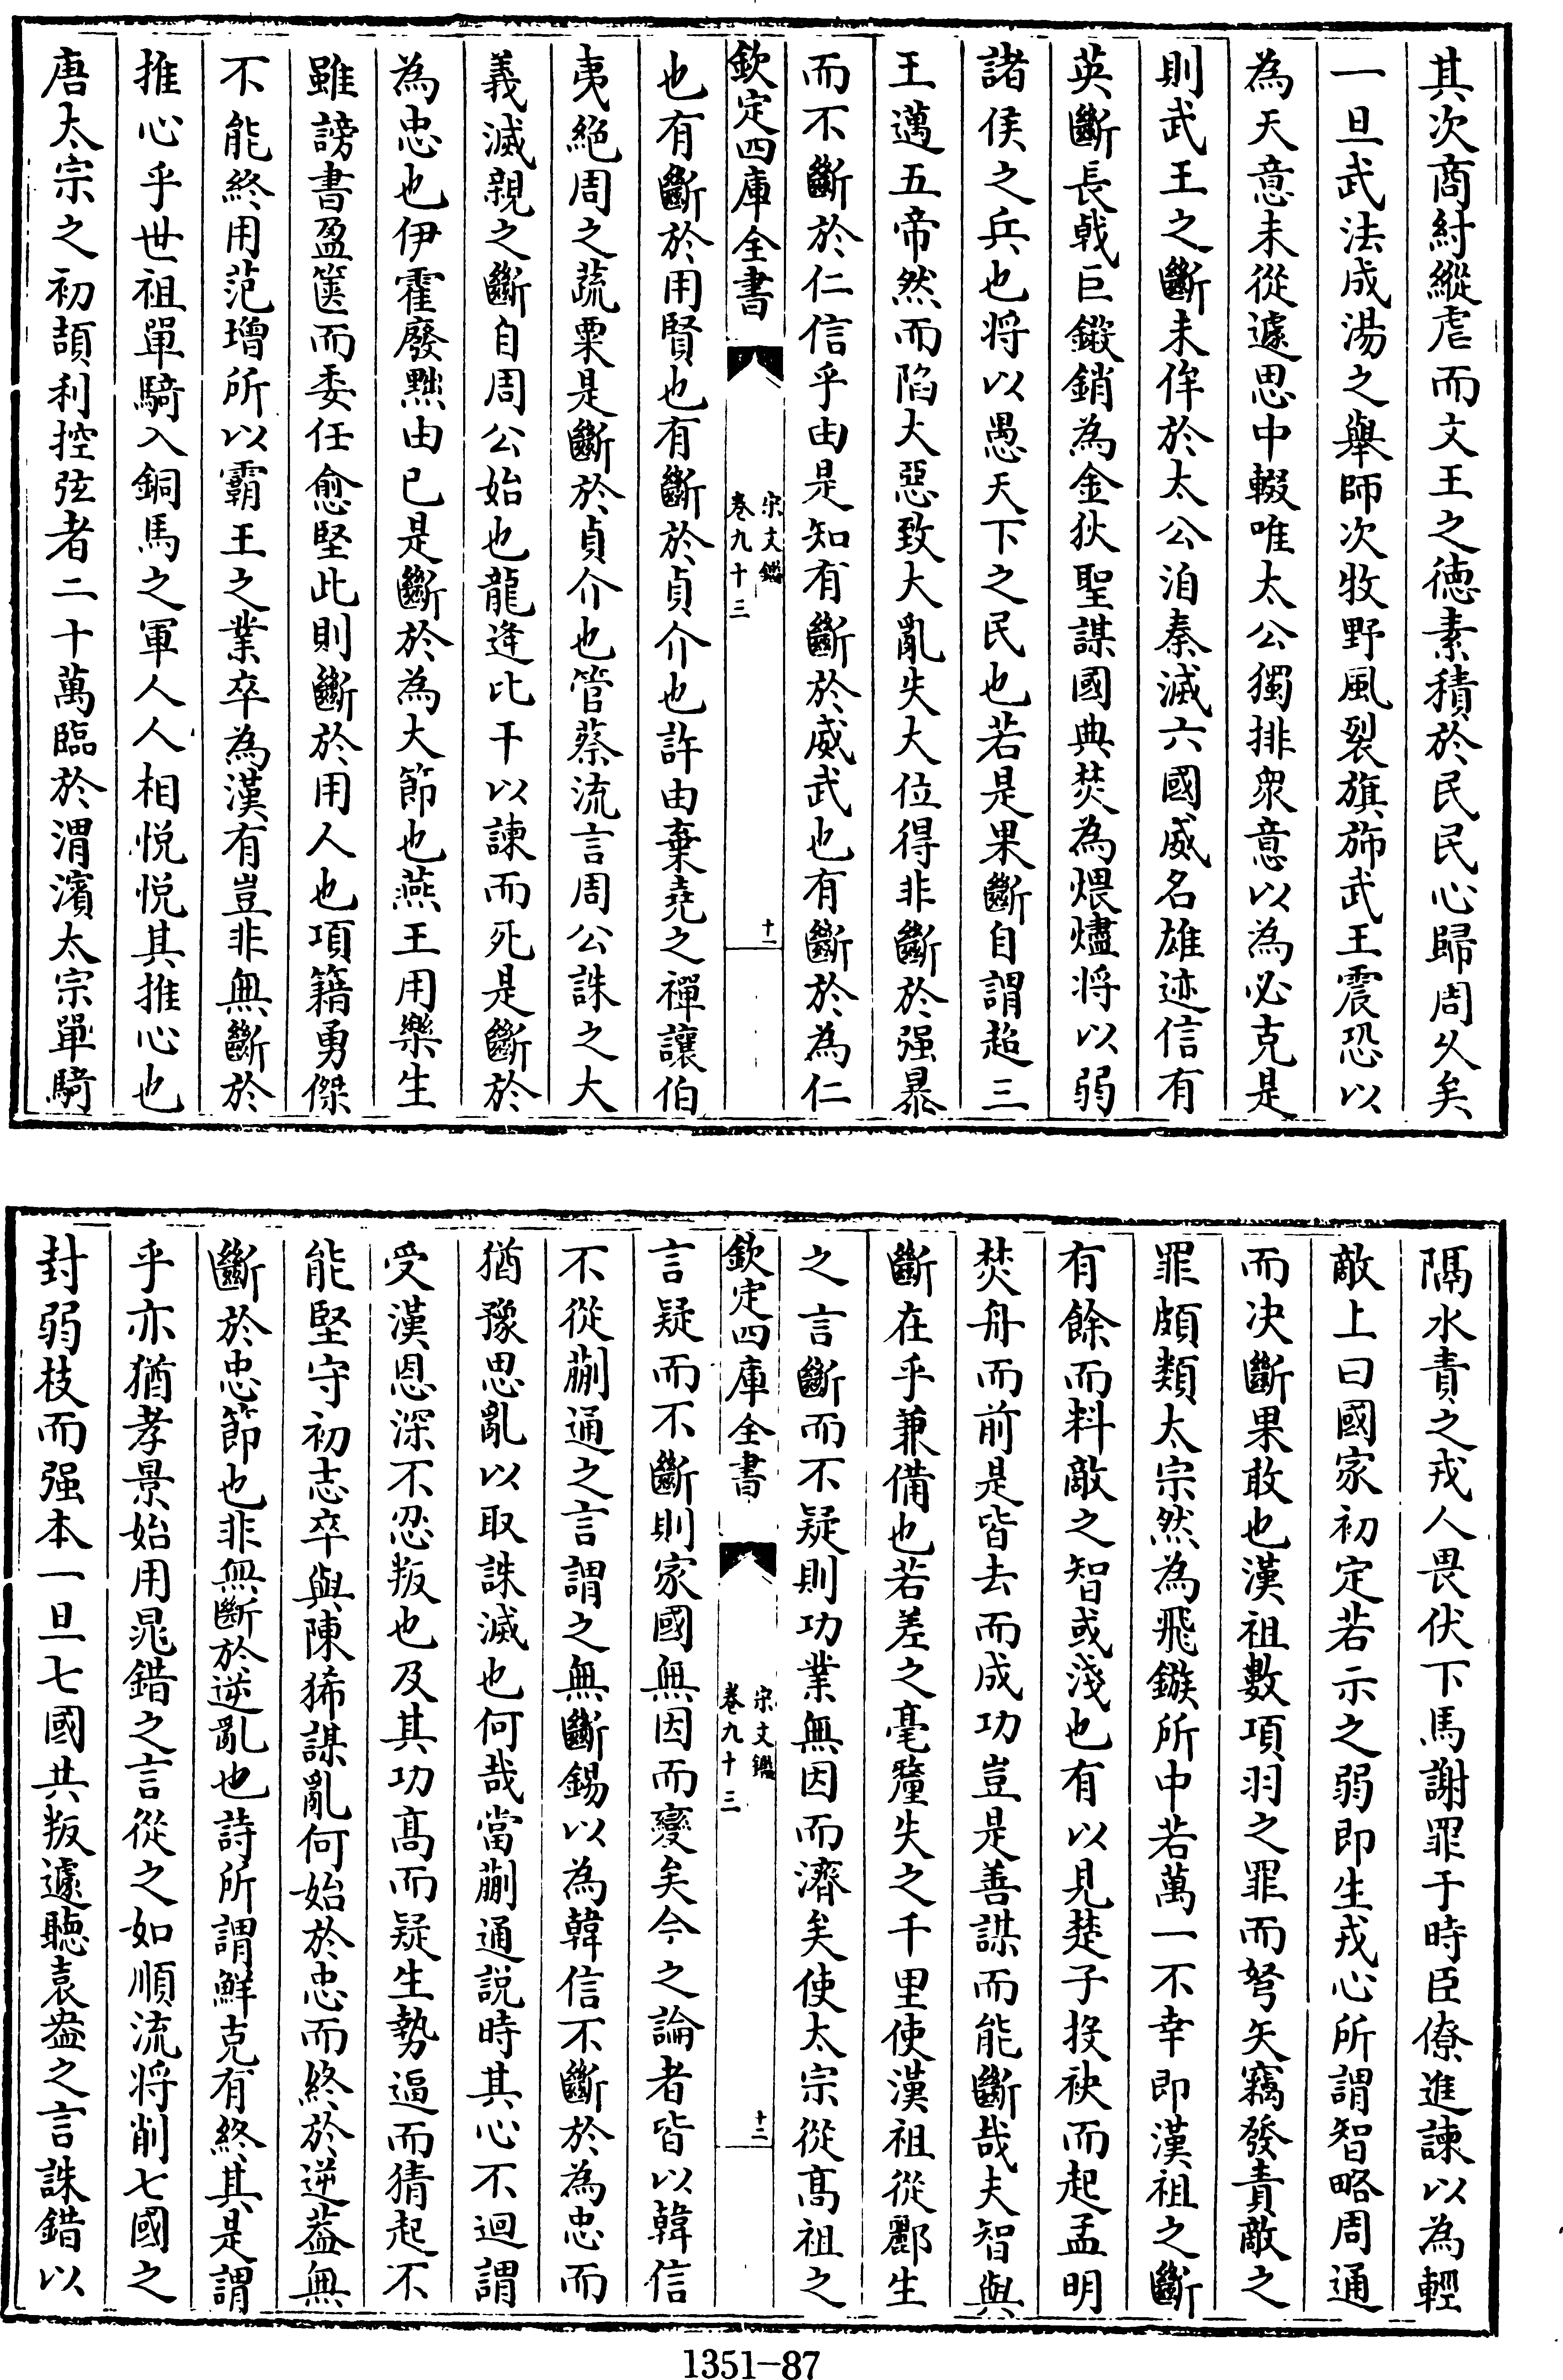 其次商紂縱虐而文王之徳素積於民民心歸周久矣
一旦武法成湯之舉師次牧野風裂旗斾武王震恐以
為天意未從遽思中輟唯太公獨排衆意以為必克是
則武王之斷未侔於太公洎秦滅六國威名雄迹信有
英斷長㦸巨鍛銷為金狄聖謀國典焚為煨燼将以弱
諸侯之兵也将以愚天下之民也若是果斷自謂超三
王邁五帝然而陷大惡致大亂失大位得非斷於强暴
而不斷於仁信乎由是知有斷於威武也有斷於為仁
欽定四庫全書
宋文鑑
卷九十三
十一
也有斷於用賢也有斷於貞介也許由棄堯之禪讓伯
夷絶周之蔬粟是斷於貞介也管蔡流言周公誅之大
義滅親之斷自周公始也龍逄比干以諫而死是斷於
為忠也伊霍廢黜由已是斷於為大節也燕王用樂生
雖謗書盈篋而委任愈堅此則斷於用人也項籍勇傑
不能終用范增所以霸王之業卒為漢有豈非無斷於
推心乎世祖單騎入銅馬之軍人人相悦悦其推心也
唐太宗之初頡利控弦者二十萬臨於渭濱太宗單騎
隔水責之戎人畏伏下馬謝罪于時臣僚進諫以為輕
敵上曰國家初定若示之弱即生戎心所謂智略周通
而决斷果敢也漢祖數項羽之罪而弩矢竊發責敵之
罪頗類太宗然為飛鏃所中若萬一不幸即漢祖之斷
有餘而料敵之智或淺也有以見楚子投袂而起孟明
焚舟而前是皆去而成功豈是善謀而能斷哉夫智與
斷在乎兼備也若差之毫釐失之千里使漢祖從酈生
之言斷而不疑則功業無因而濟矣使太宗從髙祖之
欽定四庫全書
宋文鑑
卷九十三
十二
言疑而不斷則家國無因而變矣今之論者皆以韓信
不從蒯通之言謂之無斷錫以為韓信不斷於為忠而
猶豫思亂以取誅滅也何哉當蒯通説時其心不迴謂
受漢恩深不忍叛也及其功髙而疑生勢逼而猜起不
能堅守初志卒與陳狶謀亂何始於忠而終於逆葢無
斷於忠節也非無斷於逆亂也詩所謂鮮克有終其是謂
乎亦猶孝景始用晁錯之言從之如順流将削七國之
封弱枝而强本一旦七國共叛遽聽袁盎之言誅錯以
1351-87